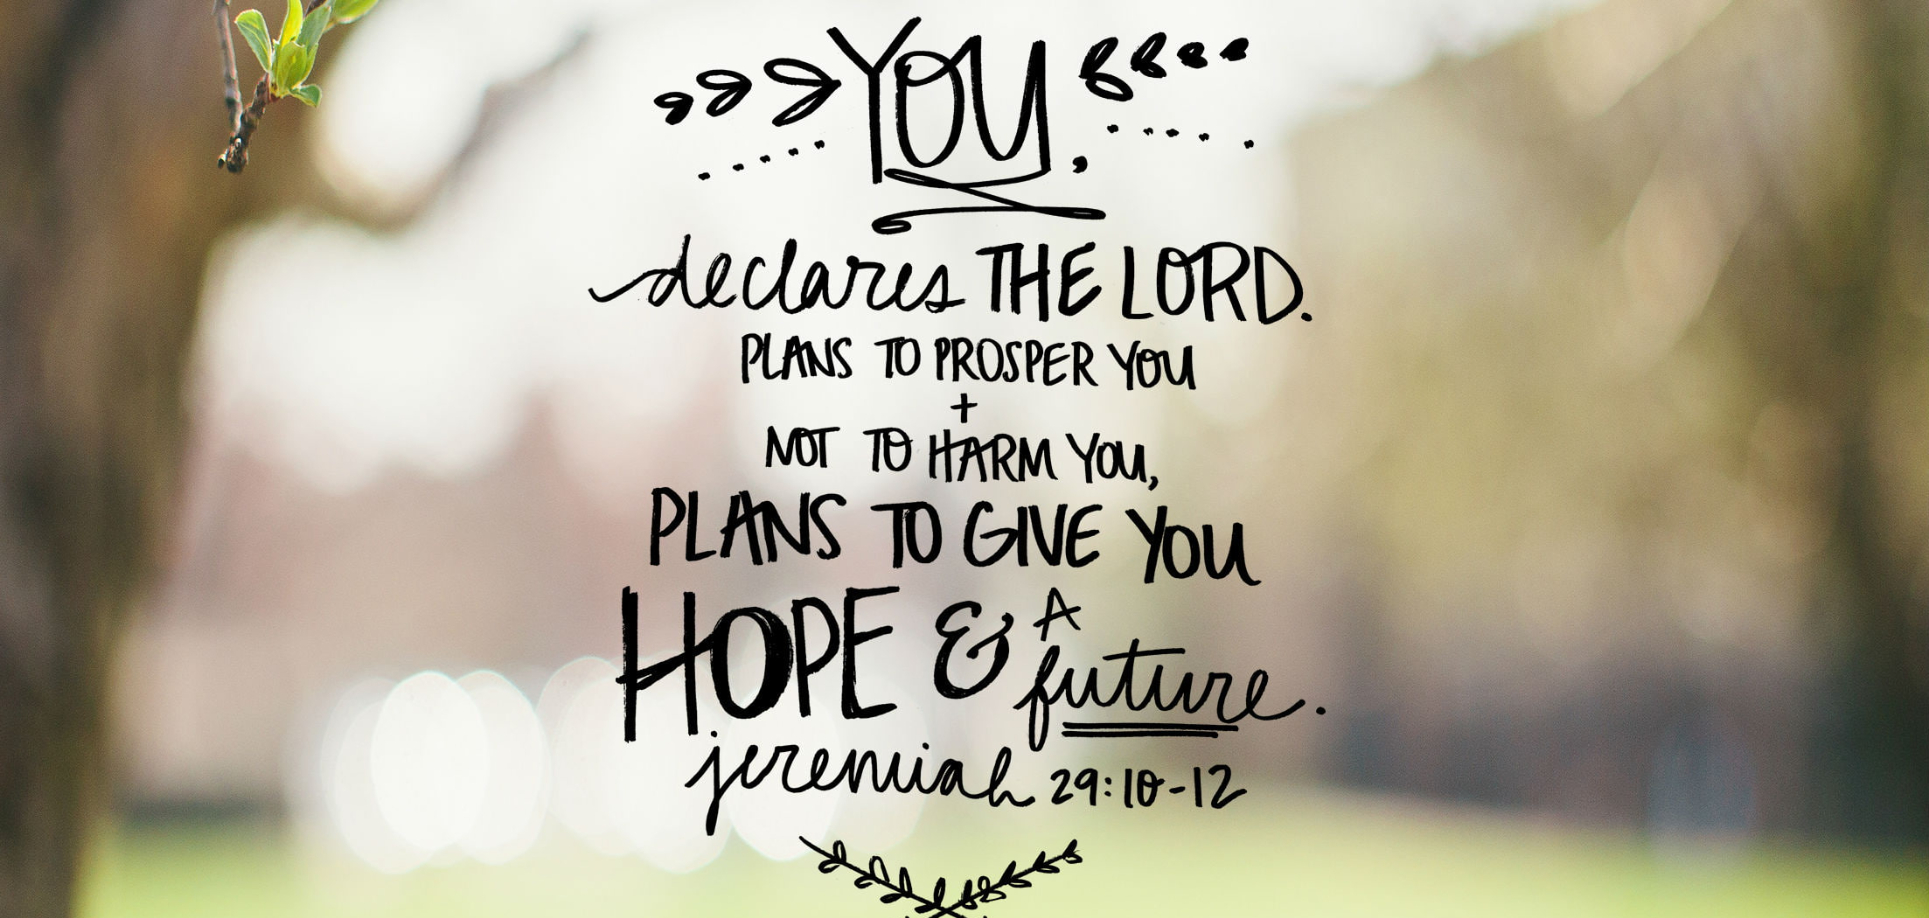 YOU,
declares THE LORD.
PLANS TO PROSPER YOU
+
NOT TO HARM YOU,
PLANS TO GIVE YOU
HOPE & A future.
jeremiah 29:10-12